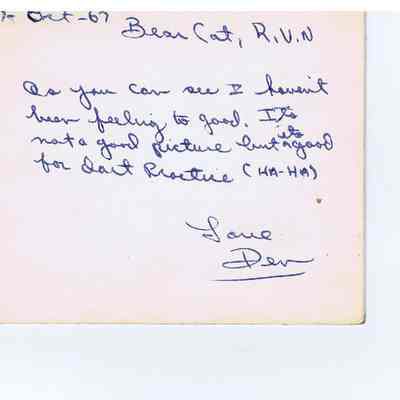 Oct-67
Bear Cat, R.V.N
as you can see I haven't
been feeling to good. It's
not a good picture but its good
for dart Practice (HA-HA)
Love
Den